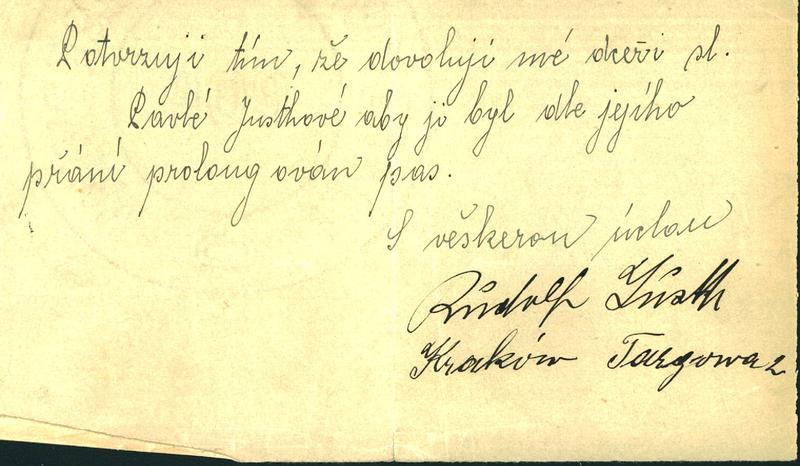 Potvrzuji tím, že dovoluji mé dceři sl.
Pavlé Justhové aby ji byl dle jejího
přání prolongován pas.
S věškerou úctou
Rudolf Justh
Kraków Targowa 2